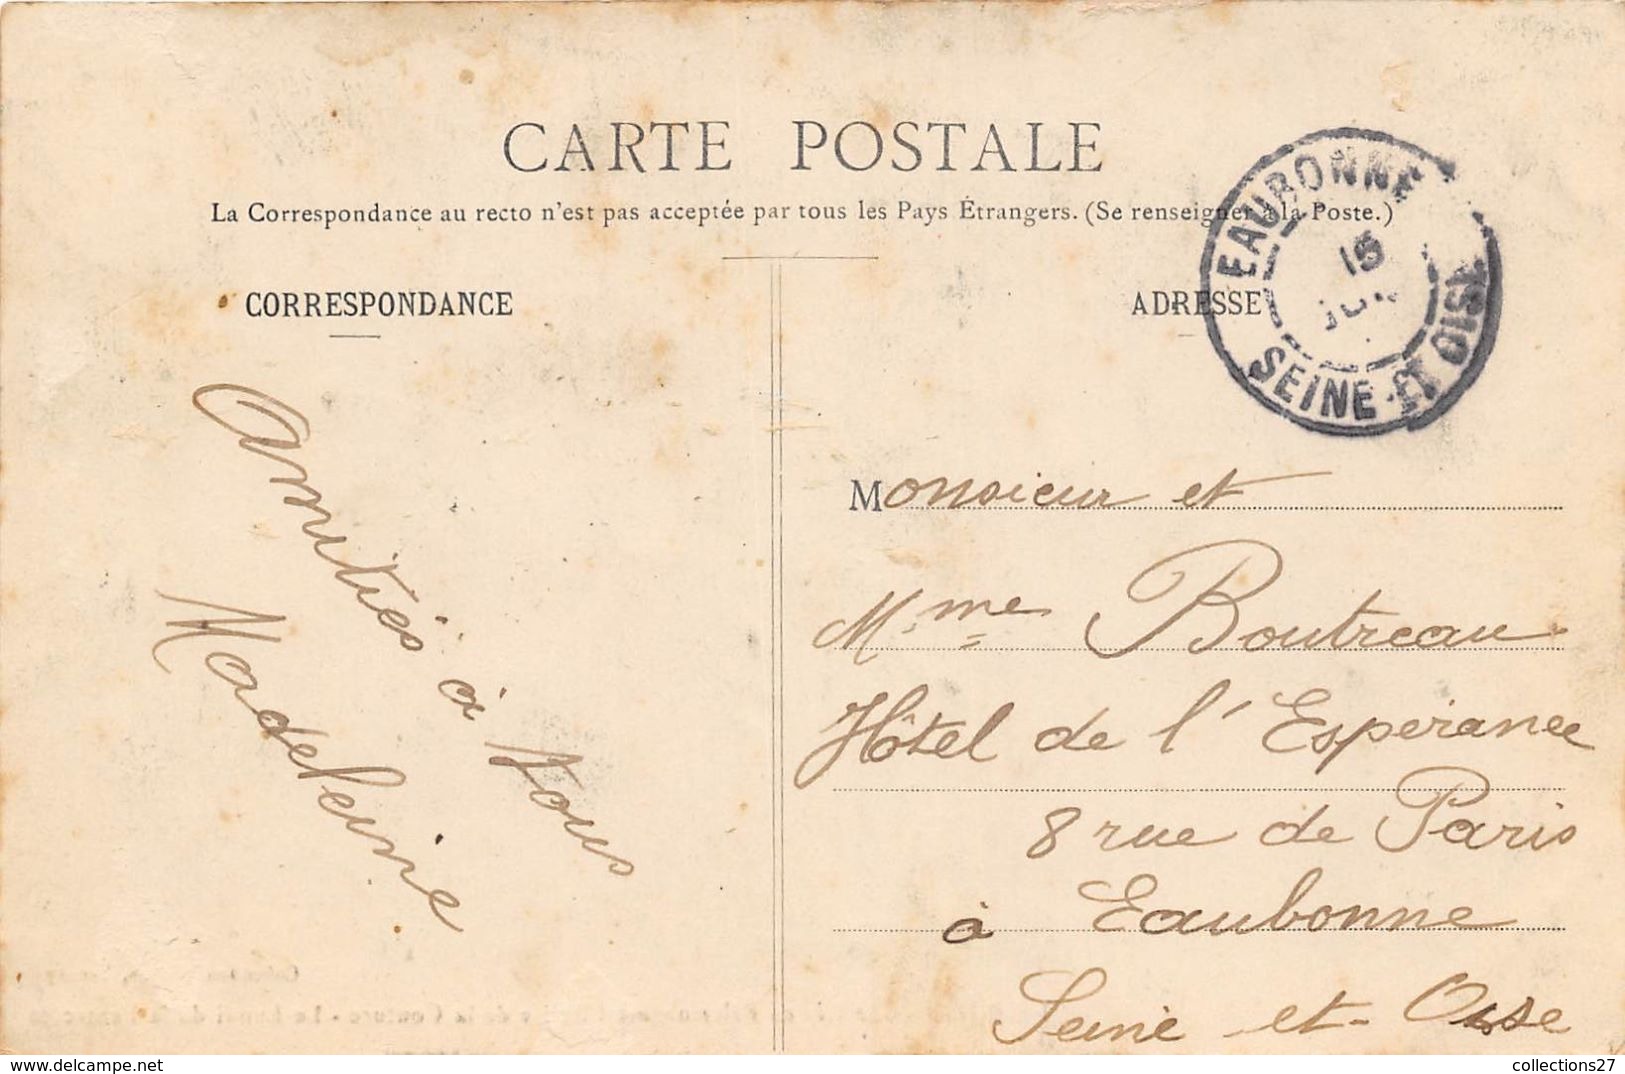 CARTE POSTALE
La Correspondance au recto n'est pas acceptée par tous les Pays Étrangers. (Se renseigner à la Poste.)
CORRESPONDANCE
ADRESSE
EAUBONNE
15
SEINE-ET-OISE
Amitiés à tous
Madeleine
Monsieur et
Mme Boutreau
Hôtel de l'Espérance
8 rue de Paris
à Eaubonne
Seine-et-Oise
collections27